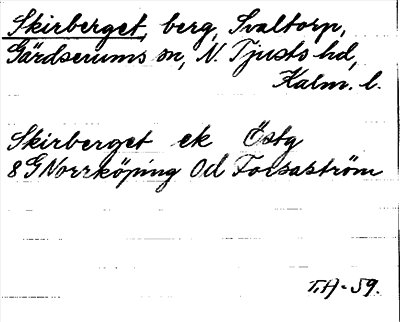 Skirberget, berg, Svaltorp,
Gärdserums sn, N. Tjusts hd,
Kalm. l.
Skirberget ek Östg
8 G Norrköping Od Forsaström
T.A-59.